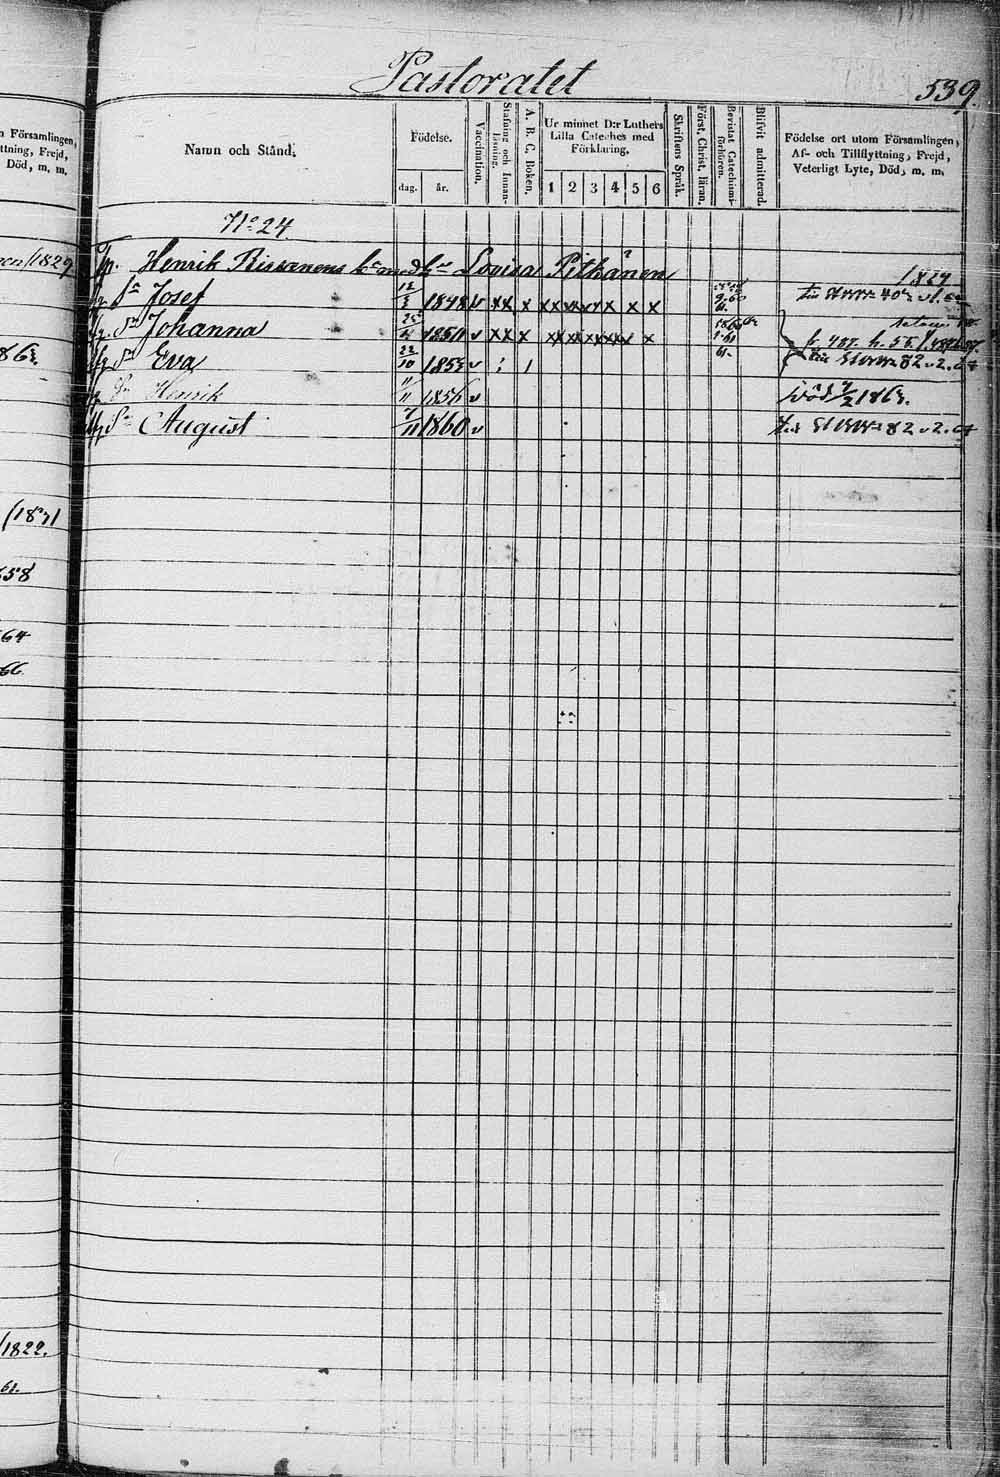 Pastoratet
539.
Namn och Stånd.
Födelse.
dag. år.
Vaccination.
Stafning och Innan-läsning.
A. B. C. Boken.
Ur minnet D:r Luthers Lilla Cateches med Förklaring.
1 2 3 4 5 6
Skriftens Språk.
Först. Christ. läran.
Bevistat Catechismi-förhören.
Blifvit admitterad.
Födelse ort utom Församlingen, Af- och Tillflyttning, Frejd, Veterligt Lyte, Död, m. m.
N:o 24.
Henrik Rissanens med Lovisa Pitkänen 1829
Josef 12 1848 v xx x x x x x x x
Johanna 1850 v xx x x x x x x x
Eva 22/10 1853 v
Henrik 11/11 1856 v död 1863.
August 7/11 1860 v 82 v 2.
n Församlingen,
ttning, Frejd,
Död, m. m.
1829
863
(1831
58
64
66
/1822.
61.